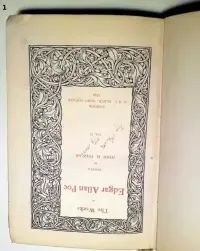 1
The Works
of
Edgar Allan Poe
EDITED
BY
JOHN H. INGRAM
VOL.
LONDON
A. & C. BLACK, SOHO SQUARE